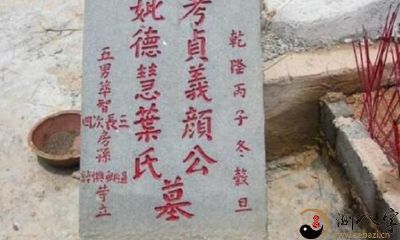 乾隆丙子冬穀旦
考貞義顏公
妣德慧葉氏
墓
五男萃智
三長次四
房孫
等立
測八字
www.cebazi.cn